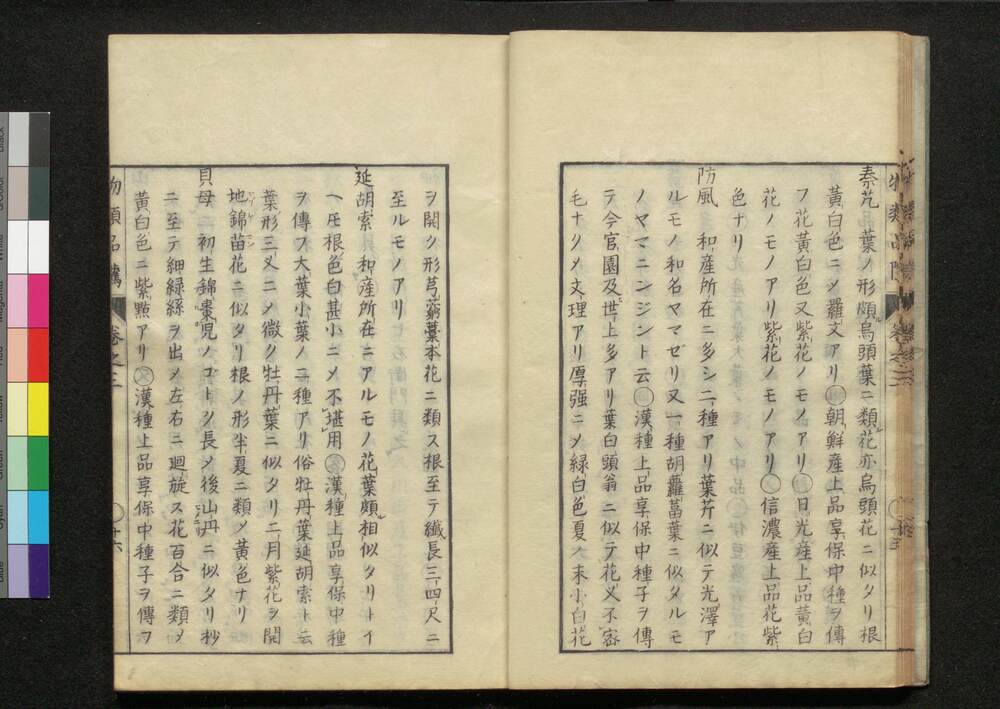 秦艽 葉ノ形頗烏頭葉ニ類ス花亦烏頭花ニ似タリ根
黃白色ニメ羅文アリ 朝鮮産上品享保中種ヲ傳
フ花黃白色又紫花ノモノアリ 日光産上品黃白
花ノモノアリ紫花ノモノアリ 信濃産上品花紫
色ナリ
防風 和産所在ニ多シ二種アリ葉芹ニ似テ光澤ア
ルモノ和名ヤマゼリ又一種胡蘿蔔葉ニ似タルモ
ノヤマニンジント云 漢種上品享保中種子ヲ傳
テ今官園及世上多アリ葉白頭翁ニ似テ花叉不容
毛ナクメ文理アリ厚强ニメ緑白色夏ノ末小白花
ヲ開ク形芎藭藁本花ニ類ス根至テ纖長三四尺ニ
至ルモノアリ
延胡索 和産所在ニアルモノ花葉頗相似タリトイ
ヘモ根色白甚小ニメ不堪用 漢種上品享保中種
ヲ傳フ大葉小葉ノ二種アリ俗牡丹葉延胡索ト云
葉形三叉ニメ微ク牡丹葉ニ似タリ二月紫花ヲ開
地錦苗花ニ似タリ根ノ形半夏ニ類メ黃色ナリ
貝母 初生錦棗兒ノゴトク長メ後山丹ニ似タリ杪
ニ至テ細緑絲ヲ出メ左右ニ廻旋ス花百合ニ類メ
黃白色ニ紫點アリ 漢種上品享保中種子ヲ傳フ
物類品隲 卷之三 十六